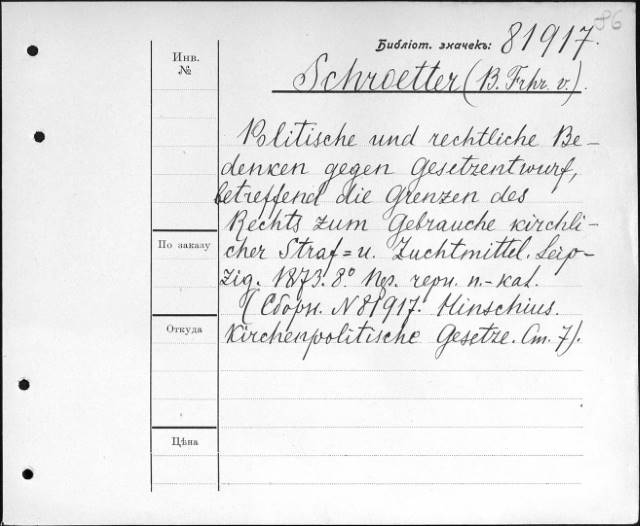 86
Библіот. значекъ: 81917.
Инв.
№
Schroetter (B. Frhr. v.).
Politische und rechtliche Be-
denken gegen Gesetzentwurf,
betreffend die Grenzen des
Rechts zum Gebrauche kirchli-
По заказу
cher Straf=u. Zuchtmittel. Leip-
zig. 1873. 8º Нѣм. п.-кат.
(Сборн. № 81917. Hinschius.
Откуда
Kirchenpolitische Gesetze. Ст. 7).
Цѣна